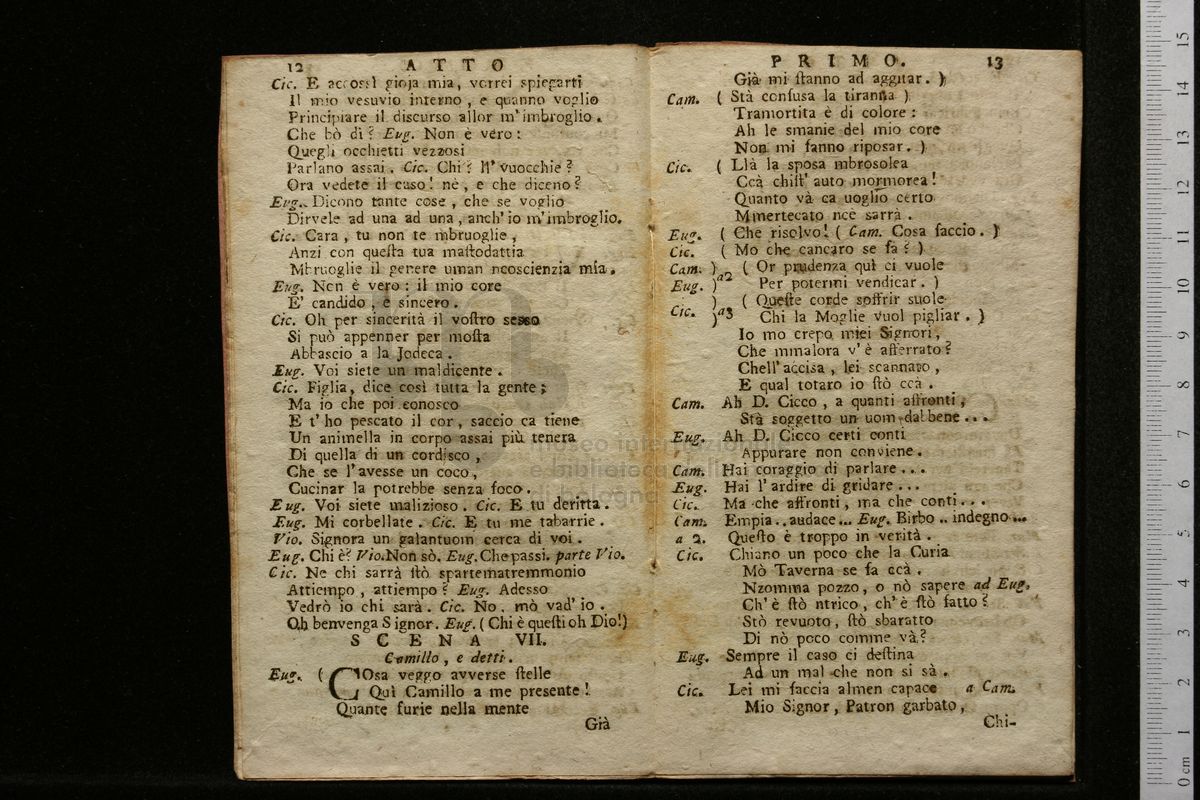 12 ATTO
Cic. E accossì gioja mia, vorrei spiegarti
Il mio vesuvio interno, e quanno voglio
Principiare il discurso allor m'imbroglio.
Che bò di? Eug. Non è vero:
Quegli occhietti vezzosi
Parlano assai. Cic. Chi? st'vuocchie?
Ora vedete il caso! nè, e che diceno?
Eug. Dicono tante cose, che se voglio
Dirvele ad una ad una, anch'io m'imbroglio.
Cic. Cara, tu non te mbruoglie,
Anzi con questa tua mastodattia
Mbruoglie il genere uman ncoscienzia mia.
Eug. Non è vero: il mio core
E' candido, e sincero.
Cic. Oh per sincerità il vostro sesso
Si può appenner per mosta
Abbascio a la Jodeca.
Eug. Voi siete un maldicente.
Cic. Figlia, dice così tutta la gente;
Ma io che poi conosco
E t'ho pescato il cor, saccio ca tiene
Un animella in corpo assai più tenera
Di quella di un cordisco,
Che se l'avesse un coco,
Cucinar la potrebbe senza foco.
Eug. Voi siete malizioso. Cic. E tu deritta.
Eug. Mi corbellate. Cic. E tu me tabarrie.
Vio. Signora un galantuom cerca di voi.
Eug. Chi è? Vio. Non sò. Eug. Che passi. parte Vio.
Cic. Ne chi sarrà stò spartematremmonio
Attiempo, attiempo? Eug. Adesso
Vedrò io chi sarà. Cic. No, mò vad'io.
Oh benvenga Signor. Eug. (Chi è questi oh Dio!)
SCENA VII.
Camillo, e detti.
Eug. ( COsa veggo avverse stelle
Quì Camillo a me presente!
Quante furie nella mente
Già
PRIMO. 13
Già mi stanno ad aggitar. )
Cam. ( Stà confusa la tiranna )
Tramortita è di colore:
Ah le smanie del mio core
Non mi fanno riposar. )
Cic. ( Llà la sposa mbrosolea
Ccà chist'auto mormorea!
Quanto và ca uoglio certo
Mmertecato ncè sarrà.
Eug. ( Che risolvo! ( Cam. Cosa faccio. )
Cic. ( Mo che cancaro se fa? )
Cam. ) a2 ( Or prudenza quì ci vuole
Eug. ) Per potermi vendicar. )
Cic. ) a3 ( Queste corde soffrir suole
Chi la Moglie vuol pigliar. )
Io mo crepo miei Signori,
Che mmalora v'è afferrato?
Chell'accisa, lei scannato,
E qual totaro io stò ccà.
Cam. Ah D. Cicco, a quanti affronti,
Stà soggetto un uom dal bene...
Eug. Ah D. Cicco certi conti
Appurare non conviene.
Cam. Hai coraggio di parlare...
Eug. Hai l'ardire di gridare...
Cic. Ma che affronti, ma che conti...
Cam. Empia.. audace... Eug. Birbo.. indegno...
a 2. Questo è troppo in verità.
Cic. Chiano un poco che la Curia
Mò Taverna se fa ccà.
Nzomma pozzo, o nò sapere ad Eug.
Ch'è stò ntrico, ch'è stò fatto?
Stò revuoto, stò sbaratto
Di nò poco comme và?
Eug. Sempre il caso ci destina
Ad un mal che non si sà.
Cic. Lei mi faccia almen capace a Cam.
Mio Signor, Patron garbato,
Chi-